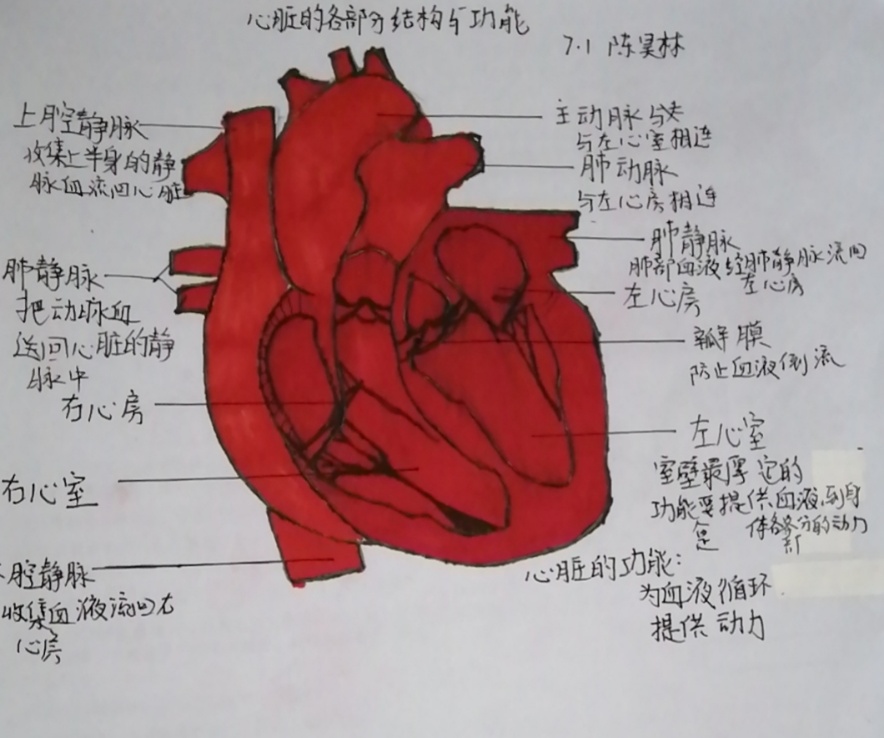 心脏的各部分结构与功能
7.1 陈昊林
上腔静脉
收集上半身的静
脉血流回心脏
肺静脉
把动脉血
送回心脏的静
脉中
右心房
右心室
腔静脉
收集血液流回右
心房
主动脉
与左心室相连
肺动脉
与左心房相连
肺静脉
肺部血液经肺静脉流回
左心房
左心房
瓣膜
防止血液倒流
左心室
室壁最厚 它的
功能是提供血液到身
体各部分的动力
心脏的功能:
为血液循环
提供动力